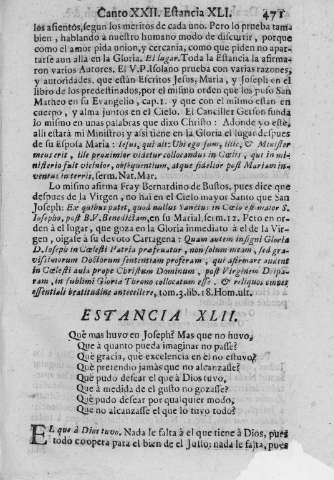 Canto XXII. Estancia XLI. 471
los asientos, segun los meritos de cada uno. Pero lo prueba tambien
, hablando a nuestro humano modo de discurrir, porque
como el amor pida union, y cercania, como que piden no apartarse
aun allà en la Gloria. El lugar. Toda la Estancia la afirmaron
varios Autores. El V.P. Isolano prueba con varias razones,
y autoridades, que estàn Escritos Jesus, Maria, y Joseph en el
libro de los predestinados, por el mismo orden que los puso San
Matheo en su Evangelio, cap. 1. y que con el mismo estàn en
cuerpo, y alma juntos en el Cielo. El Canciller Gerson funda
lo mismo en unas palabras que dixo Christo: Adonde yo estè,
alli estarà mi Ministro; y assi tiene en la Gloria el lugar despues
de su Esposa Maria: Iesus, qui ait: Ubi ego sum, illic, & Minister
meus erit, ille proximior videtur collocandus in Cœlis, qui in ministerio
fuit vicinior, obsequentior, atque fidelior post Mariam inventus
in terris, serm. Nat. Mar.
Lo mismo afirma Fray Bernardino de Bustos, pues dice que
despues de la Virgen, no hai en el Cielo mayor Santo que San
Joseph: Ex quibus patet, quod nullus Sanctus in Cœlo est maior S.
Iosepho, post B.V. Benedictam, en su Marial, serm. 12. Pero en orden
à el lugar, que goza en la Gloria inmediato à el de la Virgen,
oigase à su devoto Cartagena: Quam autem insigni Gloria
D. Ioseph in Cœlesti Patria præfueatur, non solum meam, sed gravissimorum
Doctorum sententiam proferam, qui affirmare audent
in Cœlesti aula prope Christum Dominum, post Virginem Deiparam,
in sublimi Gloriæ Throno collocatum esse, & reliquos omnes
essentiali beatitudine antecellere, tom. 3. lib. 18. Hom. ult.
ESTANCIA XLII.
Què mas huvo en Joseph? Mas que no huvo,
Que à quanto pueda imaginas no passe?
Què gracia, què excelencia en èl no estuvo?
Què pretendiò jamàs que no alcanzasse?
Què pudo desear el que à Dios tuvo,
Que à medida de el gusto no gozasse?
Què pudo desear por qualquier modo,
Que no alcanzasse el que lo tuvo todo?
EL que à Dios tuvo. Nada le falta à el que tiene à Dios, pues
todo coopera para el bien de el Justo; nada le falta, pues